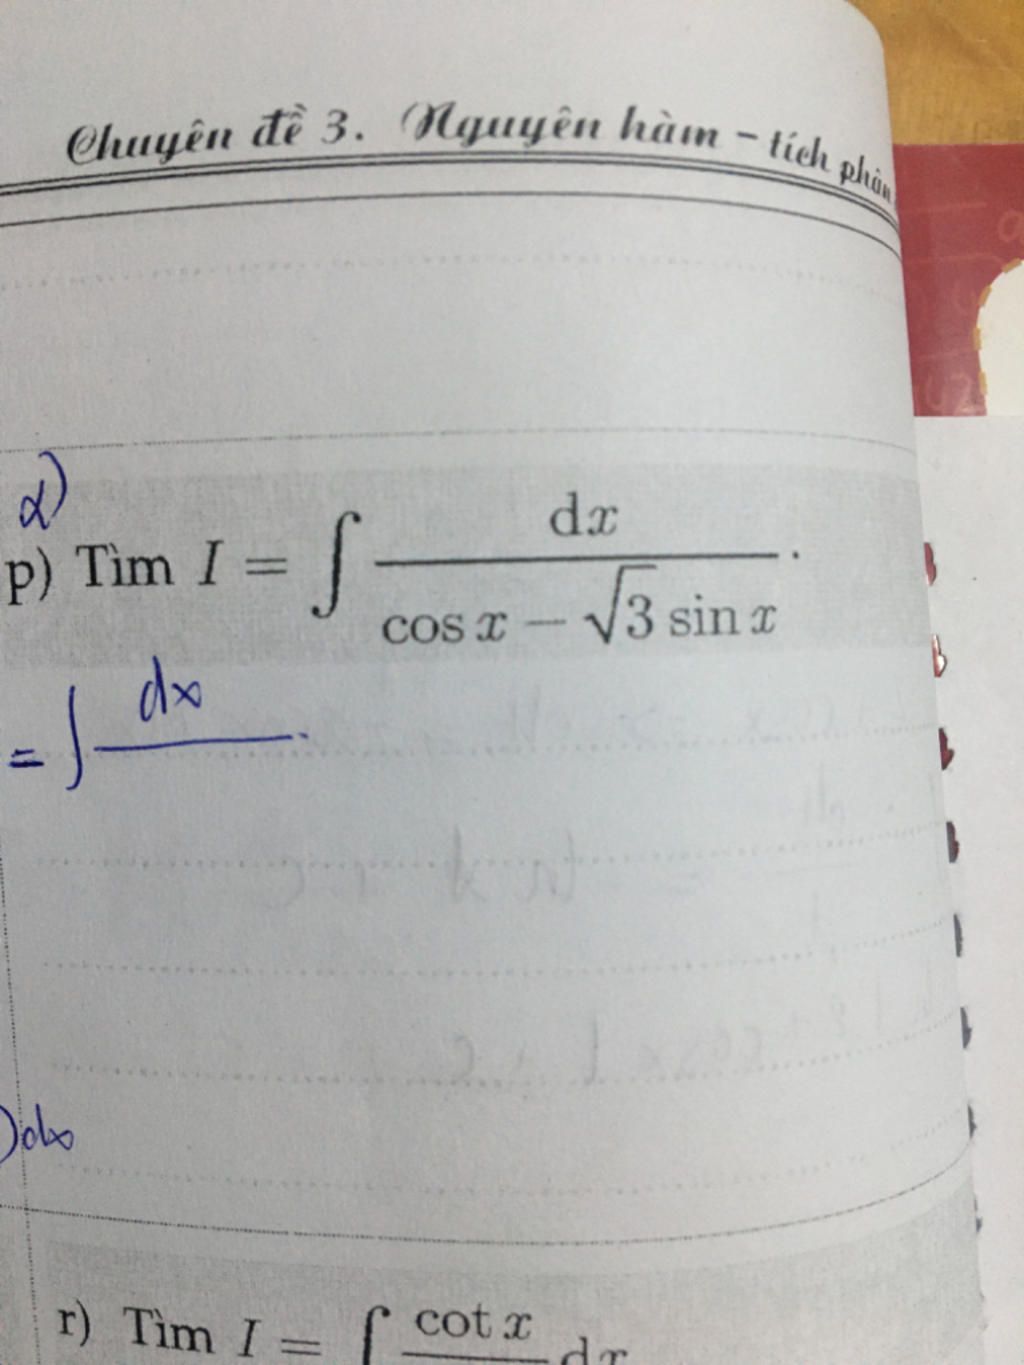 Chuyên đề 3. Nguyên hàm - tích phân
2)
p) Tìm I = ∫ dx / (cos x − √3 sin x).
= ∫ dx
)dx
r) Tìm I = ∫ cot x dx